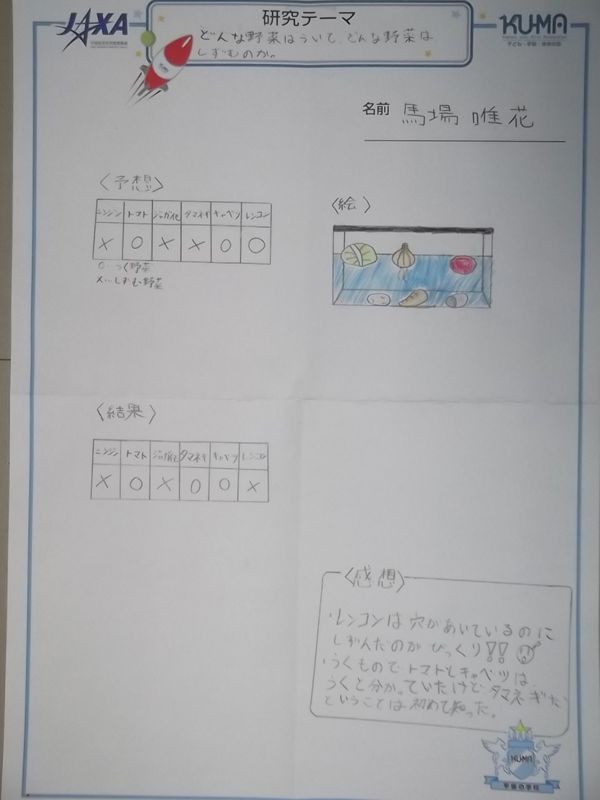 研究テーマ
JAXA
KUMA
どんな野菜はういて、どんな野菜は
しずむのか。
名前 馬場 唯花
〈予想〉
ニンジン トマト ジャガイモ タマネギ キャベツ レンコン
× ○ × × ○ ○
○…うく野菜
×…しずむ野菜
〈絵〉
〈結果〉
ニンジン トマト ジャガイモ タマネギ キャベツ レンコン
× ○ × ○ ○ ×
〈感想〉
・レンコンは穴があいているのに
しずんだのがびっくり!!
・うくもので、トマトとキャベツは、
うくと分かっていたけど、タマネギだ
ということは初めて知った。
KUMA
宇宙の学校